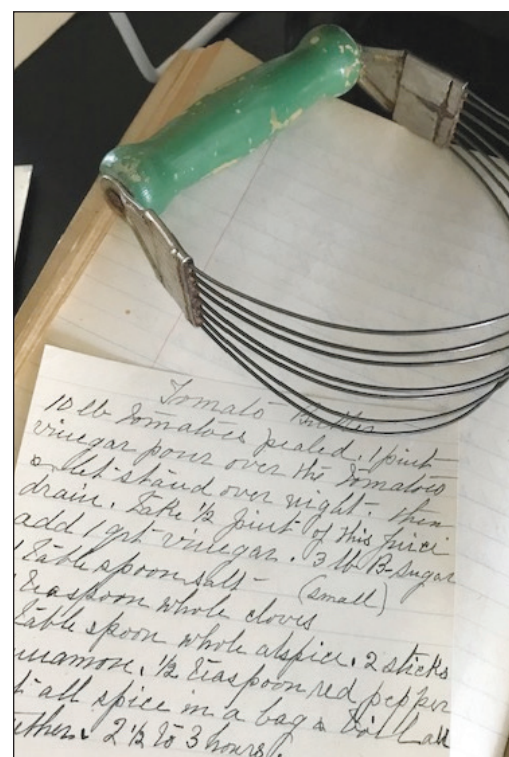 Tomato Butter
10 lb tomatoes pealed. 1 pint
vinegar pour over the tomatoes
& let stand over night. then
drain. Take ½ pint of this juice
add 1 qrt vinegar. 3 lb B-sugar
1 Table spoon salt - (small)
teaspoon whole cloves
table spoon whole alspice. 2 sticks
cinnamon. ½ teaspoon red pepper
all spice in a bag & boil all
2 ½ to 3 hours.